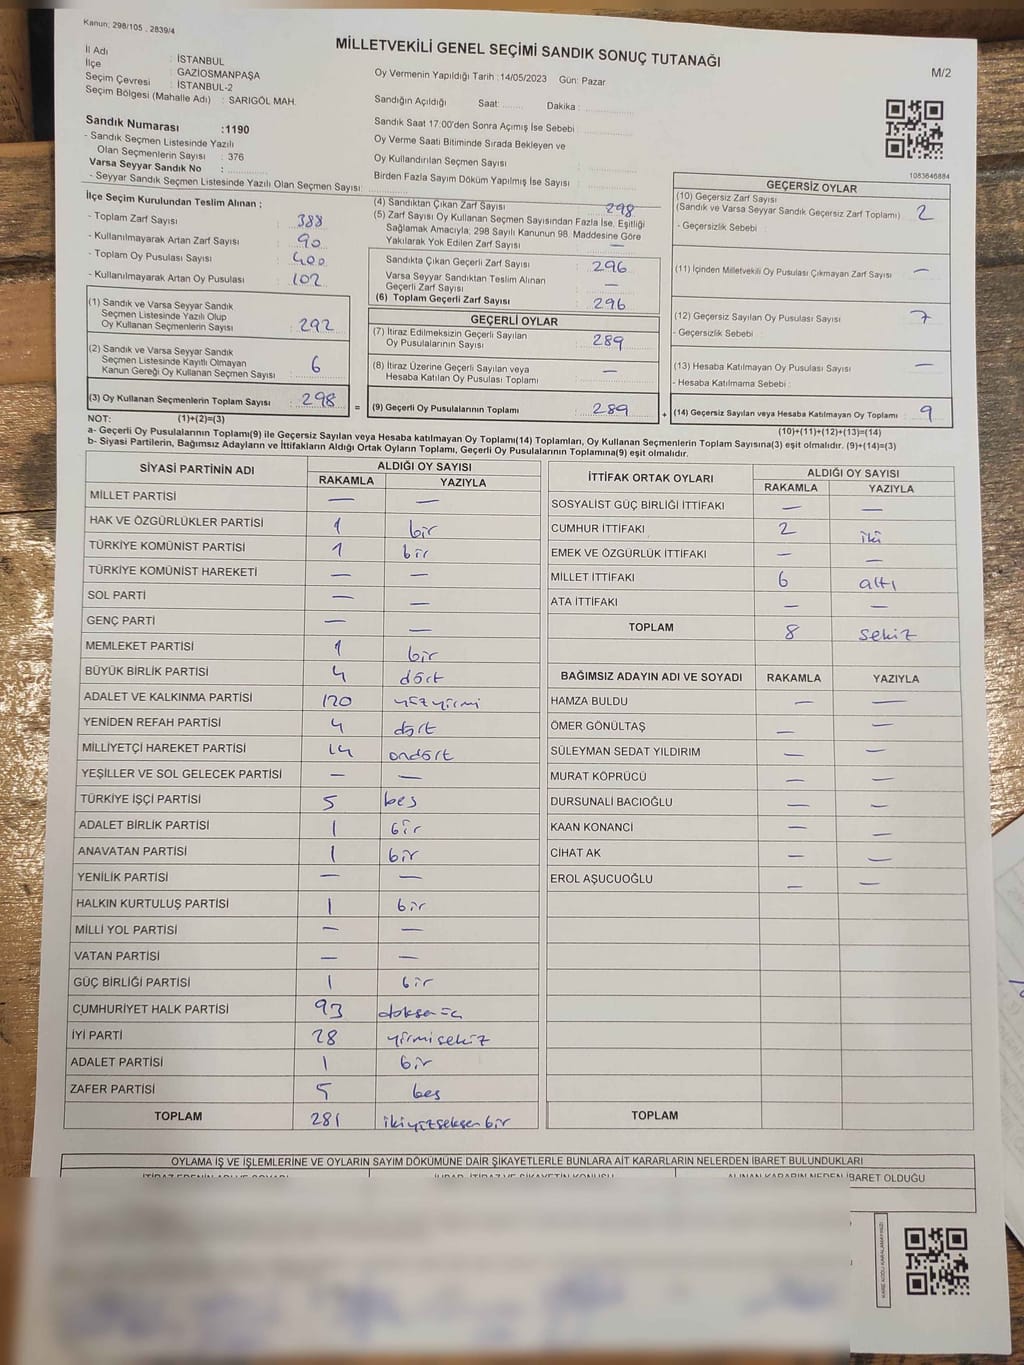 Kanun: 298/105 . 2839/4
MİLLETVEKİLİ GENEL SEÇİMİ SANDIK SONUÇ TUTANAĞI
M/2
İl Adı : İSTANBUL
İlçe : GAZİOSMANPAŞA
Seçim Çevresi : İSTANBUL-2
Seçim Bölgesi (Mahalle Adı) : SARIGÖL MAH.
Sandık Numarası :1190
- Sandık Seçmen Listesinde Yazılı
Olan Seçmenlerin Sayısı : 376
Varsa Seyyar Sandık No :
- Seyyar Sandık Seçmen Listesinde Yazılı Olan Seçmen Sayısı:
Oy Vermenin Yapıldığı Tarih :14/05/2023 Gün: Pazar
Sandığın Açıldığı Saat: Dakika :
Sandık Saat 17:00'den Sonra Açımış İse Sebebi :
Oy Verme Saati Bitiminde Sırada Bekleyen ve
Oy Kullandırılan Seçmen Sayısı :
Birden Fazla Sayım Döküm Yapılmış İse Sayısı :
1083646884
İlçe Seçim Kurulundan Teslim Alınan ;
- Toplam Zarf Sayısı : 388
- Kullanılmayarak Artan Zarf Sayısı : 90
- Toplam Oy Pusulası Sayısı : 400
- Kullanılmayarak Artan Oy Pusulası : 102
(1) Sandık ve Varsa Seyyar Sandık
Seçmen Listesinde Yazılı Olup
Oy Kullanan Seçmenlerin Sayısı : 292
(2) Sandık ve Varsa Seyyar Sandık
Seçmen Listesinde Kayıtlı Olmayan
Kanun Gereği Oy Kullanan Seçmen Sayısı : 6
(3) Oy Kullanan Seçmenlerin Toplam Sayısı : 298
(4) Sandıktan Çıkan Zarf Sayısı : 298
(5) Zarf Sayısı Oy Kullanan Seçmen Sayısından Fazla İse, Eşitliği
Sağlamak Amacıyla, 298 Sayılı Kanunun 98. Maddesine Göre
Yakılarak Yok Edilen Zarf Sayısı : —
Sandıkta Çıkan Geçerli Zarf Sayısı : 296
Varsa Seyyar Sandıktan Teslim Alınan
Geçerli Zarf Sayısı : —
(6) Toplam Geçerli Zarf Sayısı : 296
GEÇERLİ OYLAR
(7) İtiraz Edilmeksizin Geçerli Sayılan
Oy Pusulalarının Sayısı : 289
(8) İtiraz Üzerine Geçerli Sayılan veya
Hesaba Katılan Oy Pusulası Toplamı : —
= (9) Geçerli Oy Pusulalarının Toplamı : 289
GEÇERSİZ OYLAR
(10) Geçersiz Zarf Sayısı
(Sandık ve Varsa Seyyar Sandık Geçersiz Zarf Toplamı) : 2
- Geçersizlik Sebebi :
(11) İçinden Milletvekili Oy Pusulası Çıkmayan Zarf Sayısı : —
(12) Geçersiz Sayılan Oy Pusulası Sayısı : 7
- Geçersizlik Sebebi :
(13) Hesaba Katılmayan Oy Pusulası Sayısı : —
- Hesaba Katılmama Sebebi :
+ (14) Geçersiz Sayılan veya Hesaba Katılmayan Oy Toplamı : 9
NOT: (1)+(2)=(3)
(10)+(11)+(12)+(13)=(14)
a- Geçerli Oy Pusulalarının Toplamı(9) ile Geçersiz Sayılan veya Hesaba katılmayan Oy Toplamı(14) Toplamları, Oy Kullanan Seçmenlerin Toplam Sayısına(3) eşit olmalıdır. (9)+(14)=(3)
b- Siyasi Partilerin, Bağımsız Adayların ve İttifakların Aldığı Ortak Oyların Toplamı, Geçerli Oy Pusulalarının Toplamına(9) eşit olmalıdır.
SİYASİ PARTİNİN ADI ALDIĞI OY SAYISI
RAKAMLA YAZIYLA
MİLLET PARTİSİ — —
HAK VE ÖZGÜRLÜKLER PARTİSİ 1 bir
TÜRKİYE KOMÜNİST PARTİSİ 1 bir
TÜRKİYE KOMÜNİST HAREKETİ — —
SOL PARTİ — —
GENÇ PARTİ — —
MEMLEKET PARTİSİ 1 bir
BÜYÜK BİRLİK PARTİSİ 4 dört
ADALET VE KALKINMA PARTİSİ 120 yüzyirmi
YENİDEN REFAH PARTİSİ 4 dört
MİLLİYETÇİ HAREKET PARTİSİ 14 ondört
YEŞİLLER VE SOL GELECEK PARTİSİ — —
TÜRKİYE İŞÇİ PARTİSİ 5 beş
ADALET BİRLİK PARTİSİ 1 bir
ANAVATAN PARTİSİ 1 bir
YENİLİK PARTİSİ — —
HALKIN KURTULUŞ PARTİSİ 1 bir
MİLLİ YOL PARTİSİ — —
VATAN PARTİSİ — —
GÜÇ BİRLİĞİ PARTİSİ 1 bir
CUMHURİYET HALK PARTİSİ 93 doksanüç
İYİ PARTİ 28 yirmisekiz
ADALET PARTİSİ 1 bir
ZAFER PARTİSİ 5 beş
TOPLAM 281 ikiyüzseksenbir
İTTİFAK ORTAK OYLARI ALDIĞI OY SAYISI
RAKAMLA YAZIYLA
SOSYALİST GÜÇ BİRLİĞİ İTTİFAKI — —
CUMHUR İTTİFAKI 2 iki
EMEK VE ÖZGÜRLÜK İTTİFAKI — —
MİLLET İTTİFAKI 6 altı
ATA İTTİFAKI — —
TOPLAM 8 sekiz
BAĞIMSIZ ADAYIN ADI VE SOYADI RAKAMLA YAZIYLA
HAMZA BULDU — —
ÖMER GÖNÜLTAŞ — —
SÜLEYMAN SEDAT YILDIRIM — —
MURAT KÖPRÜCÜ — —
DURSUNALİ BACIOĞLU — —
KAAN KONANCİ — —
CİHAT AK — —
EROL AŞUCUOĞLU — —
TOPLAM
OYLAMA İŞ VE İŞLEMLERİNE VE OYLARIN SAYIM DÖKÜMÜNE DAİR ŞİKAYETLERLE BUNLARA AİT KARARLARIN NELERDEN İBARET BULUNDUKLARI
ALINAN KARARIN NEDEN İBARET OLDUĞU